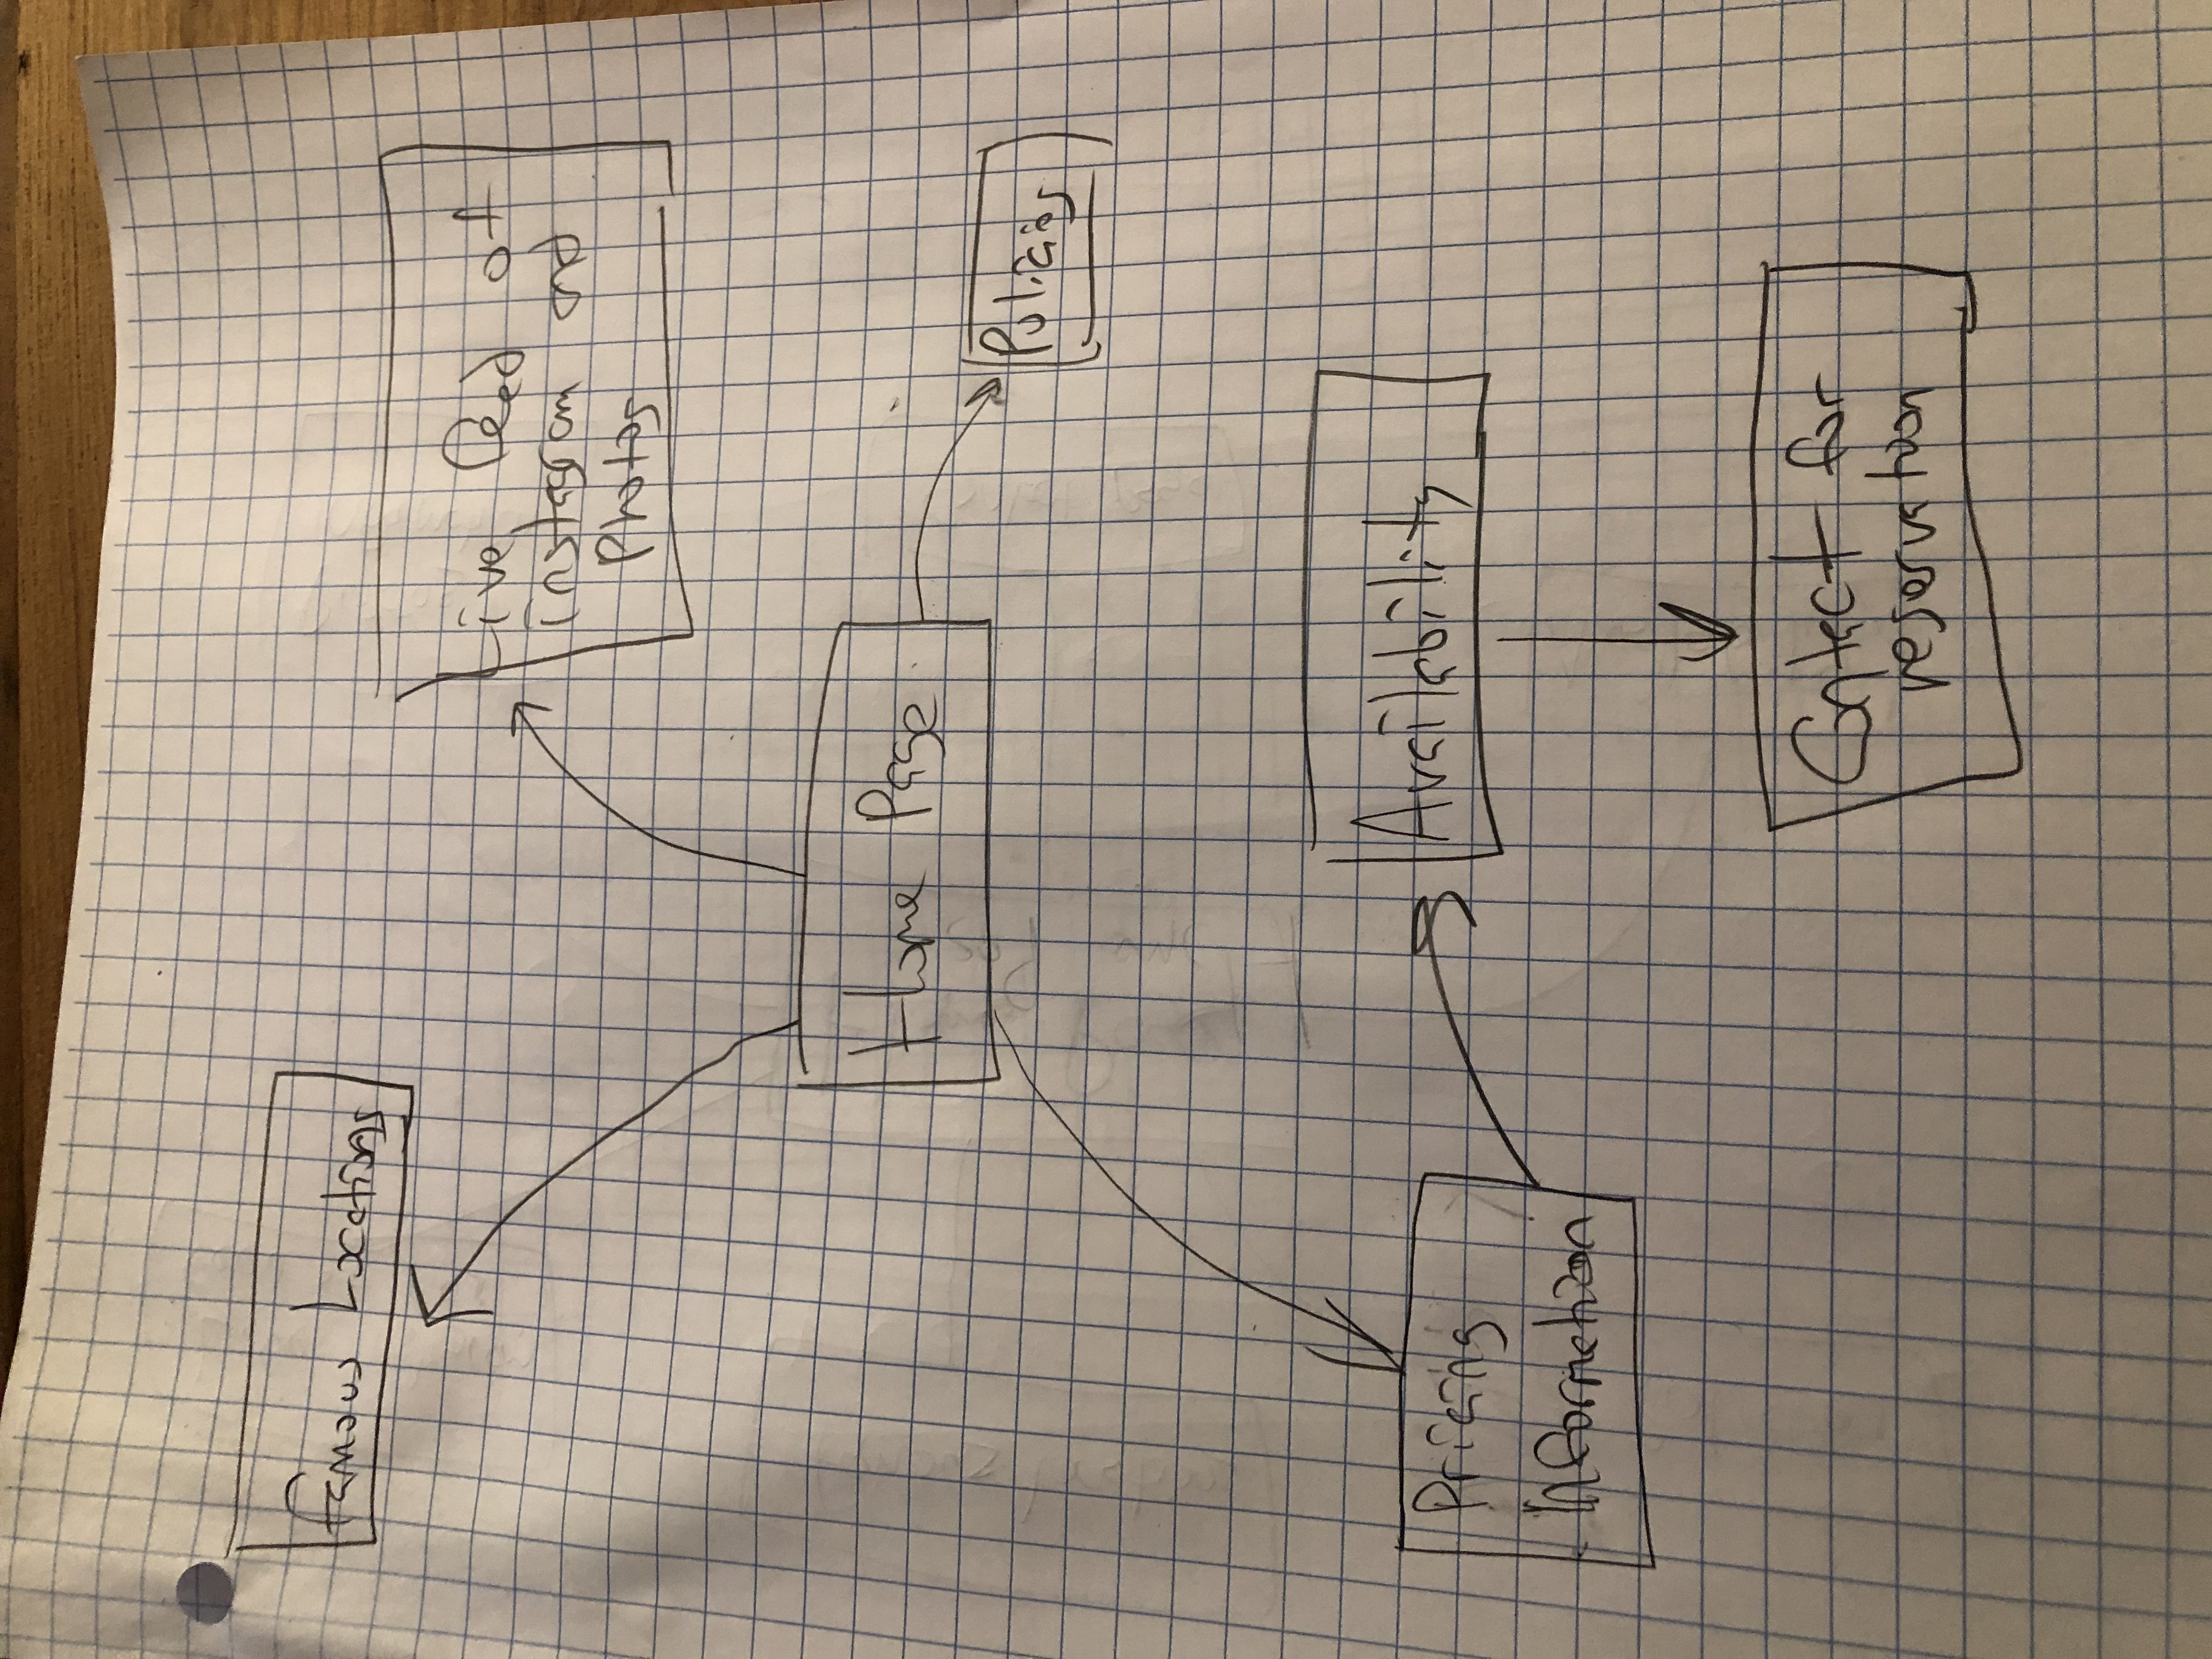 Famous Locations
Live feed of
instagram and
Photos
Home Page
Policies
Pricing
Information
Availability
Contact for
reservation